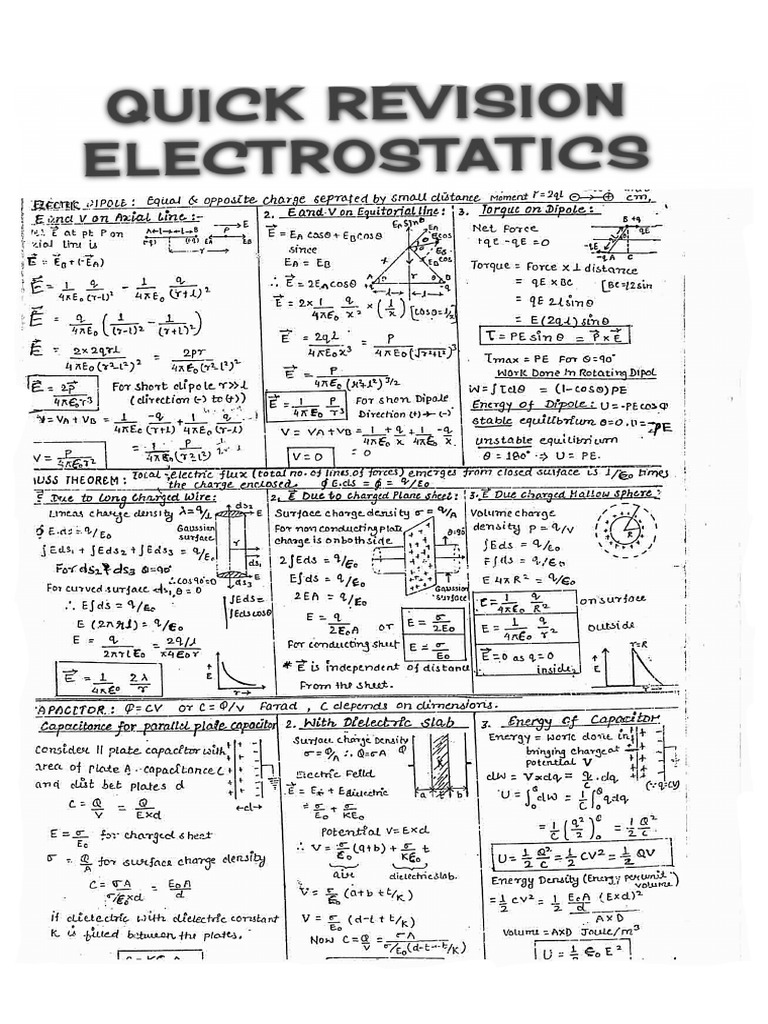 QUICK REVISION
ELECTROSTATICS
DIPOLE: Equal & opposite charge seprated by small distance Moment r=2ql cm,
E and V on Axial line:-
E at pt P on
axial line is
E⃗ = E_B + (-E⃗_A)
E⃗ = 1/4πε₀ q/(r-l)² - 1/4πε₀ q/(r+l)²
E⃗ = q/4πε₀ (1/(r-l)² - 1/(r+l)²)
E⃗ = 2×2qrl/4πε₀(r²-l²)² = 2pr/4πε₀(r²-l²)²
E⃗ = 2p⃗/4πε₀r³ For short dipole r≫l
(direction (-) to (+))
V = V_A + V_B = 1/4πε₀ -q/(r+l) + 1/4πε₀ q/(r-l)
V = P/4πε₀r² = 1/4πε₀ P/(r²-l²)
2. E and V on Equitorial line:
E⃗ = E_A cosθ + E_B cosθ
since
E_A = E_B
∴ E⃗ = 2E_A cosθ
E⃗ = 2× 1/4πε₀ q/x² × (l/x) [cosθ=l/x]
E⃗ = 2ql/4πε₀x³ = P/4πε₀(√r²+l²)³
E⃗ = P/4πε₀(r²+l²)^3/2
E⃗ = 1/4πε₀ P/r³ For short Dipole
Direction (+) → (-)
V = V_A + V_B = 1/4πε₀ +q/x + 1/4πε₀ -q/x
V = 0 = 0
3. Torque on Dipole:
Net Force
+qE -qE = 0
Torque = Force × ⊥ distance
= qE × BC [BC=l2sin
= qE 2l sinθ
= E(2ql) sinθ
τ = PE sinθ = P⃗ × E⃗
τmax = PE For θ=90°
Work Done In Rotating Dipol
W = ∫τdθ = (1-cosθ)PE
Energy of Dipole: U = -PEcosθ
stable equilibrium θ=0, U=-PE
unstable equilibrium
θ = 180° → U = PE.
USS THEOREM: Total electric flux (total no. of lines of forces) emerges from closed surface is 1/ε₀ times
the charge enclosed. ∮E.ds = φ = q/ε₀
Due to Long Charged Wire:
Linear charge density λ = q/l
∮E.ds = q/ε₀ Gaussian
surface
∫Eds₁ + ∫Eds₂ + ∫Eds₃ = q/ε₀
For ds₂ & ds₃ θ=90°
∴cos90=0
For curved surface ds₁, θ=0
∴ E∫ds = q/ε₀ ∫Eds = ∫Eds cosθ
E (2πrl) = q/ε₀
E = q/2πrlε₀ = 2q/l/×4πε₀r
E⃗ = 1/4πε₀ 2λ/r
2. E⃗ Due to charged Plane sheet:
Surface charge density σ = q/A
For non conducting plate
charge is on both side
2∫Eds = q/ε₀
E∫ds = q/ε₀
2EA = q/ε₀ Gaussian
surface
E = q/2ε₀A or E = σ/2ε₀
For conducting sheet E = σ/ε₀
* E⃗ is independent of distance
From the sheet.
3. E Due charged Hallow sphere:
Volume charge
density ρ = q/V
∫Eds = q/ε₀
E∫ds = q/ε₀
E 4πR² = q/ε₀
E = 1/4πε₀ q/R² on surface
E = 1/4πε₀ q/r² outside
E⃗ = 0 as q = 0 inside
r=R
APACITOR: Q=CV or C=Q/V Farad, C depends on dimensions.
Capacitance for parallel plate capacitor
Consider ll plate capacitor with
area of plate A. capacitance C
and dist bet plates d
C = Q/V = Q/E×d
E = σ/ε₀ for charged sheet
σ = Q/A for surface charge density
C = σA/σ/ε₀×d = ε₀A/d
if dielectric with dielectric constant
K is filled between the plates.
2. With Dielectric slab
Surface charge Density
σ = Q/A ∴ Q = σA
Electric Feild
E⃗ = E_air + E_dielectric
= σ/ε₀ + σ/Kε₀
Potential V = E×d
∴ V = σ/ε₀ (a+b) + σ/Kε₀ t
air dielectric slab.
V = σ/ε₀ (a+b+t/K)
V = σ/ε₀ (d-t + t/K)
Now C = Q/V = σA/σ/ε₀(d-t+t/K)
3. Energy of Capacitor
Energy = work done in
bringing charge at
potential V
dW = V×dq = q/C.dq (∵ q=CV)
U = ∫dW = 1/C ∫q.dq
= 1/C (q²/2) = 1/2 Q²/C
U = 1/2 Q²/C = 1/2 CV² = 1/2 QV
Energy Density (Energy per unit
volume)
= 1/2 CV² = 1/2 ε₀A/d (E×d)²/A×D
Volume = A×D Joule/m³
U = 1/2 ε₀E²